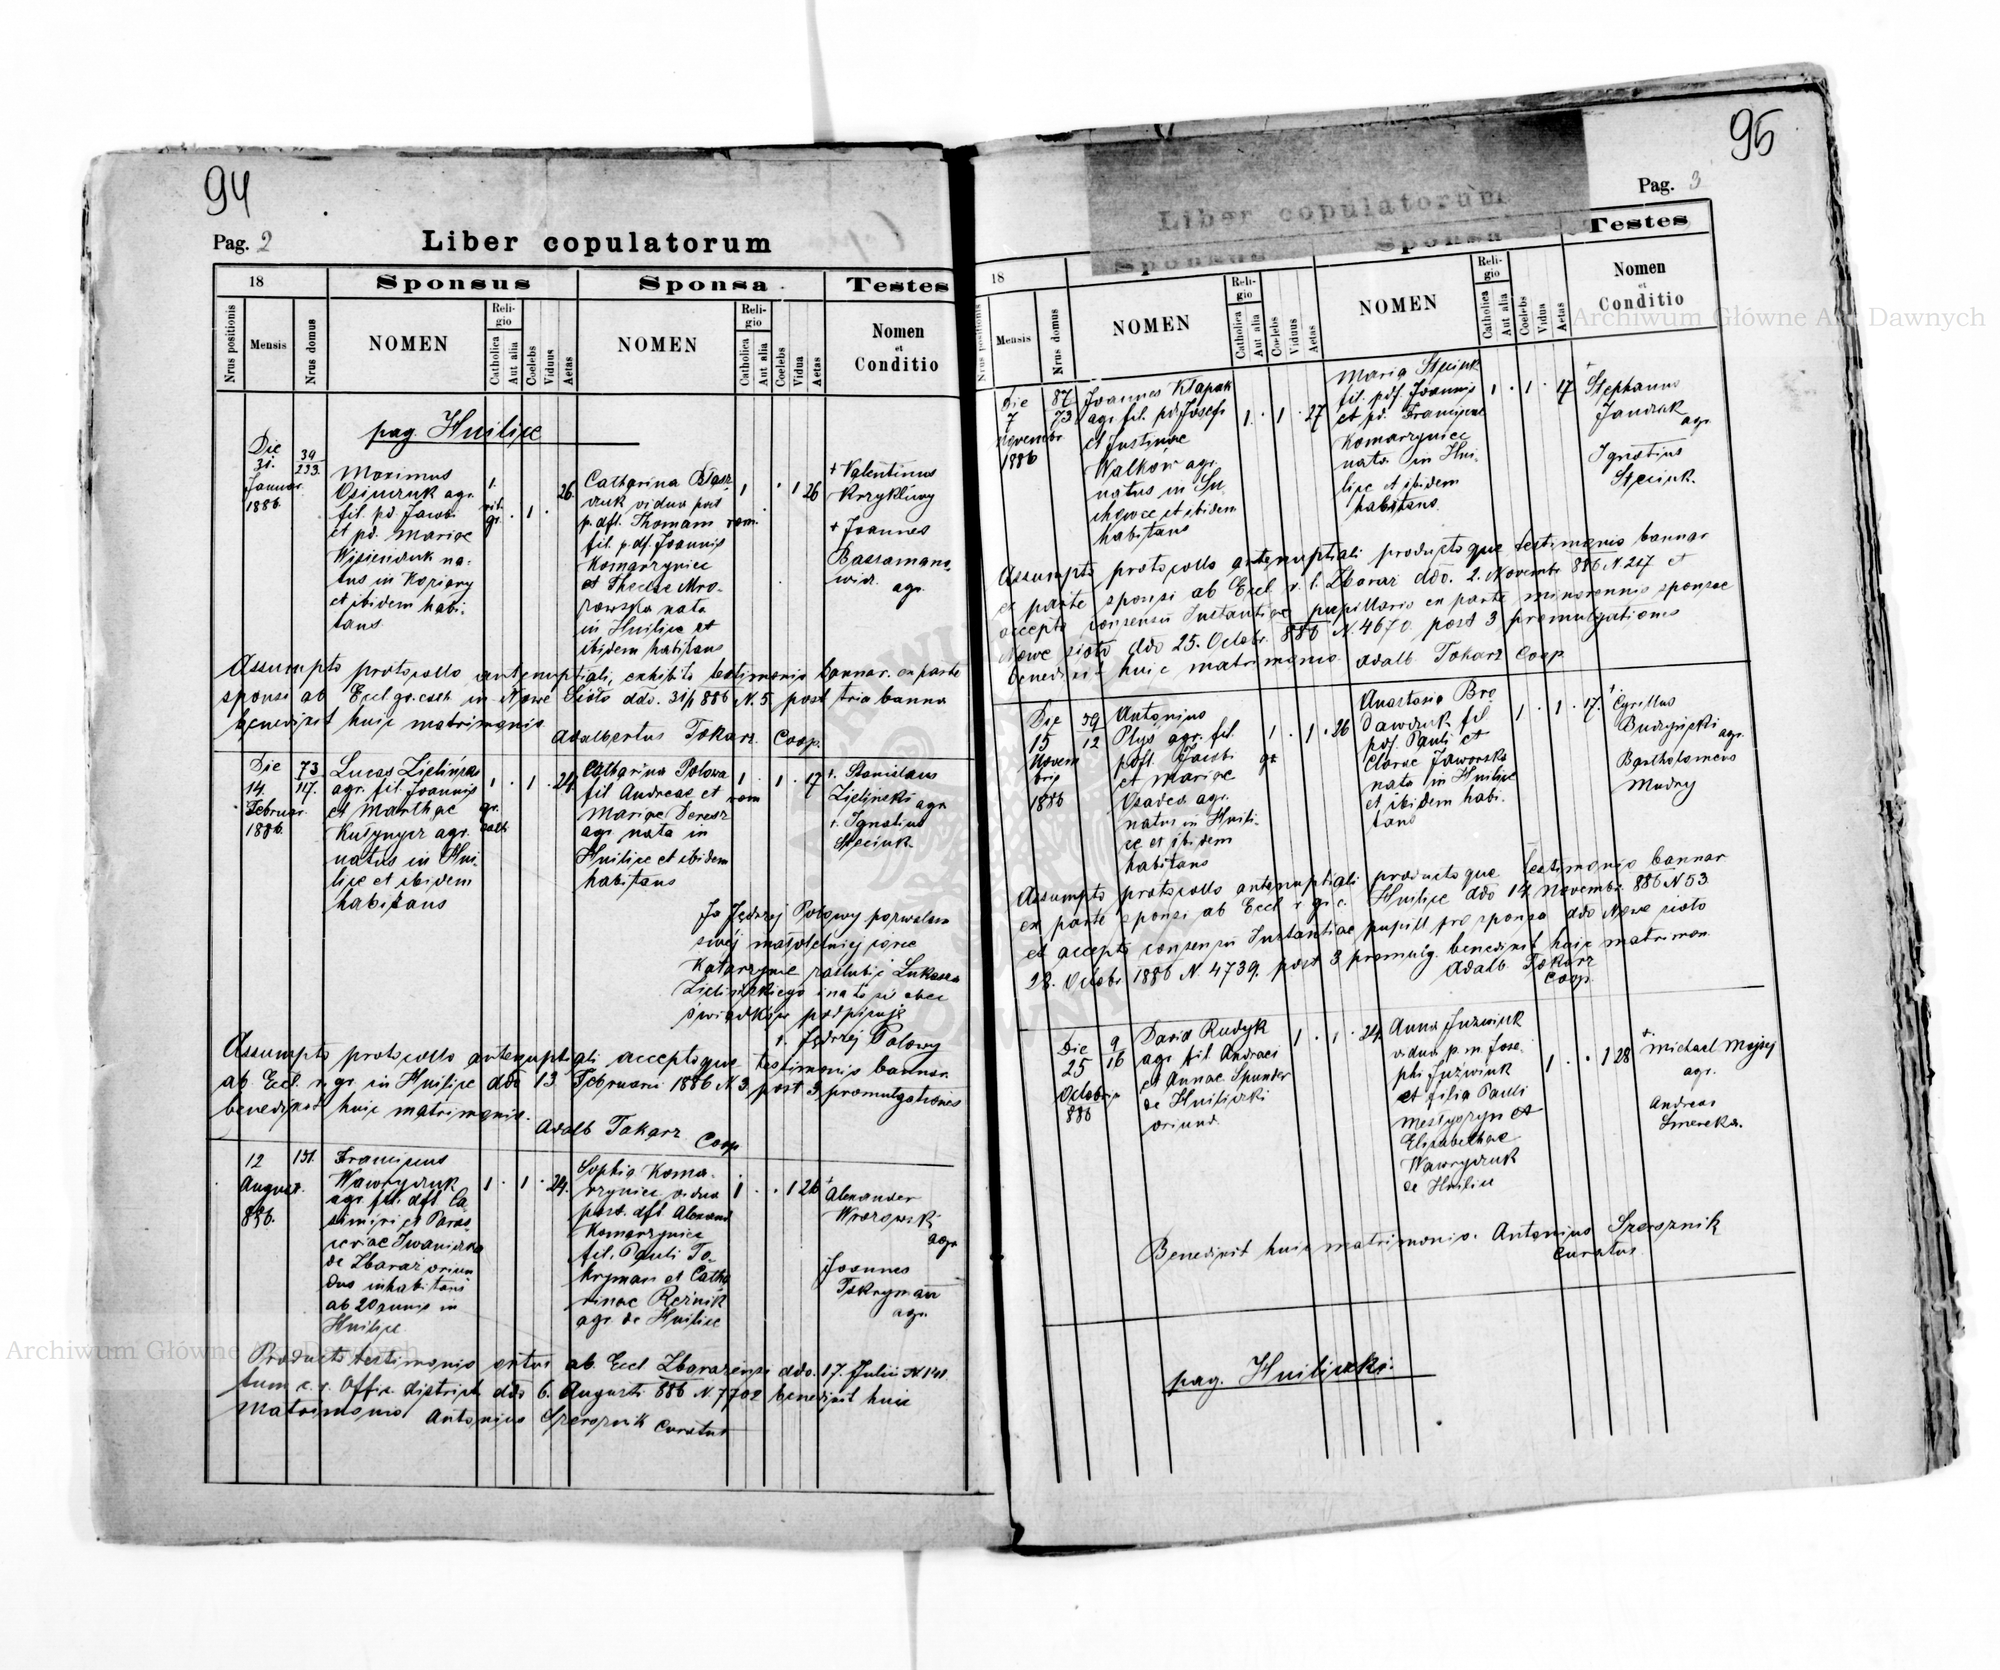 94
Pag. 2
Liber copulatorum
18
Sponsus
Sponsa
Testes
Nrus positionis
Mensis
Nrus domus
NOMEN
Religio
Catholica
Aut alia
Coelebs
Viduus
Aetas
NOMEN
Religio
Catholica
Aut alia
Coelebs
Vidua
Aetas
Nomen
et
Conditio
pag. Hnilice
Die
31.
Januar.
1886.
39
233.
Maximus
agr.
fil. pd. Jacobi
et pd. Mariae
na-
tus in Koziary
et ibidem habi-
tans
1.
rit.
gr.
1
26.
Catharina Błasz-
czuk vidua post
p. dft. Thomam
fil. p. df. Joannis
Komarzyniec
et Theclae Mro-
zowska nata
in Hnilice et
ibidem habitans
1
rom.
1
26
+ Valentinus
Krzykliwy
+ Joannes
agr.
Assumpto protocollo antenuptiali, exhibito testimonio bannor. ex parte
sponsi ab Eccl. gr. cath. in Nowe Sioło ddo. 31/1 886 N. 5 post tria banna
benedixit huic matrimonio.
Adalbertus Tokarz Coop.
Die
14.
Februar.
1886.
73.
117.
Lucas Zieliński
agr. fil. Joannis
et Marthae
agr.
natus in Hni-
lice et ibidem
habitans
1
gr.
cath
1
24
Catharina Polowa
fil Andreae et
Mariae Deresz
agr. nata in
Hnilice et ibidem
habitans
1
rom
1
17
+. Stanislaus
Zieliński agr.
+. Ignatius
Steciuk
Ja Jędrzej Polowy pozwalam
swej małoletniej córce
Katarzynie zaślubić Łukasza
Zielińskiego i na to się obec
świadków podpisuję
+. Jędrzej Polowy
Assumpto protocollo antenuptiali acceptoque testimonio bannor.
ab Eccl. r. gr. in Hnilice ddo 13. Februarii 1886 N. 3. post 3 promulgationes
benedixit huic matrimonio.
Adalb Tokarz Coop
12
August.
886.
131.
Franciscus
Wawryczuk
agr. fil. dft. Ca-
simiri et Paras-
ceviae Iwaniczka
de Zbaraz oriun
dus inhabitans
ab 20 annis in
Hnilice
1
1
24.
Sophia Koma-
rzyniec vidua
post. dft. Alexand
Komarzyniec
fil. Pauli To-
kryman et Catha
rinae Reźnik
agr. de Hnilice
1
1
26
+
Alexander
Mrozowski
agr
Joannes
Tokryman
agr.
Producto testimonio ortus ab Eccl. Zbarazensi ddo. 17. Julii N 141.
tum c. r. Offic. district. ddo 6. Augusti 886 N. 7702 benedixit huic
Matrimonio Antonius Szeroznik Curatus
95
Pag. 3
Liber copulatorum
18
Sponsus
Sponsa
Testes
Nrus positionis
Mensis
Nrus domus
NOMEN
Religio
Catholica
Aut alia
Coelebs
Viduus
Aetas
NOMEN
Religio
Catholica
Aut alia
Coelebs
Vidua
Aetas
Nomen
et
Conditio
Die
7
Novembr.
1886
87
73
Joannes Kłapak
agr. fil. pd. Josefi
et Justinae
Walków agr.
natus in
et ibidem
habitans
1.
1
27
Maria Steciuk
fil. pdf. Joannis
et pd. Franciscae
Komarzyniec
nata in Hni-
lice et ibidem
habitans.
1
1
17
+
Stephanus
Jandruk
agr.
Ignatius
Steciuk.
Assumpto protocollo antenuptiali productoque testimonio bannor
ex parte sponsi ab Eccl. r. l. Zbaraz ddo. 2. Novembr. 886 N. 217 et
accepto consensu Instantiae pupillaris ex parte minorennis sponsae
Nowe sioło ddo 25. Octobr. 886 N. 4670. post 3 promulgationes
benedixit huic matrimonio. Adalb. Tokarz Coop
Die
15
Novem
bris
1886
59
12
Antonius
Plys agr. fil.
pdft. Jacobi
et Mariae
Osadca agr.
natus in Hnili-
ce et ibidem
habitans
1
gr
1
26
Anastasia Bro
dawczuk fil
pdf. Pauli et
Clarae Jaworska
nata in Hnilice
et ibidem habi-
tans
1
1
17.
+
Cyrillus
Budzyński agr.
Bartholomeus
Mudry
Assumpto protocollo antenuptiali productoque testimonio bannor
ex parte sponsi ab Eccl r. gr. c. Hnilice ddo 14. Novembr. 886 N 53
et accepto consensu Instantiae pupill pro sponsa ddo Nowe sioło
28. Octobr. 1886 N. 4739. post 3 promulg. benedixit huic matrimon.
Adalb. Tokarz
Coop.
Die
25
Octobris
886
9
16
David Rudyk
agr. fil Andreae
et Annae Spunder
de Hniliczki
oriund.
1
1
24
Anna Juzwiuk
vidua p. m. Jose-
phi Juzwiuk
et filia Pauli
et
Elisabethae
Wawryczuk
de Hnilice
1
1
28
+.
Michael Mojsej
agr.
Andreas
Smereka.
Benedixit huic matrimonio. Antonius Szeroznik
Curatus
pag. Hniliczki.
Archiwum Główne Akt Dawnych
Archiwum Główne Akt Dawnych